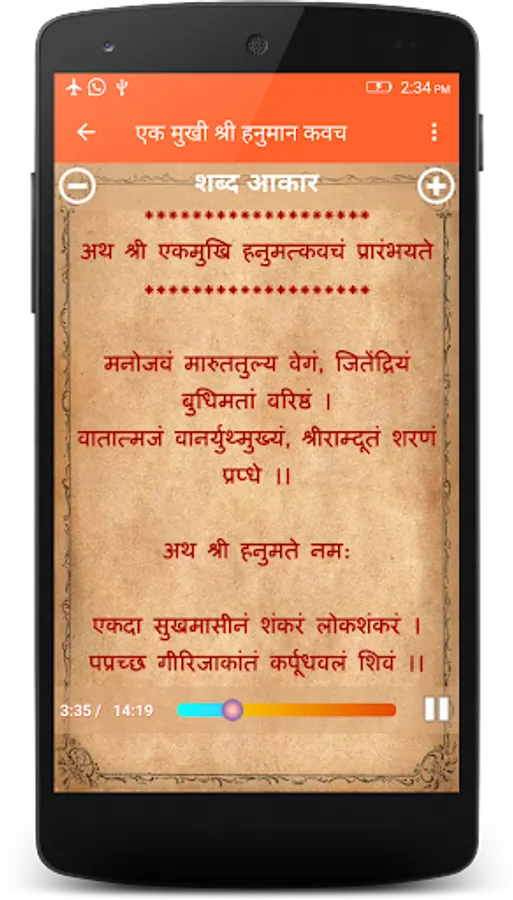 2:34 PM
एक मुखी श्री हनुमान कवच
शब्द आकार
*******************
अथ श्री एकमुखि हनुमत्कवचं प्रारंभयते
*******************
मनोजवं मारुततुल्य वेगं, जितेंद्रियं
बुधिमतां वरिष्ठं ।
वातात्मजं वानर्युथ्मुख्यं, श्रीराम्दूतं शरणं
प्रप्धे ।।
अथ श्री हनुमते नमः
एकदा सुखमासीनं शंकरं लोकशंकरं ।
पप्रच्छ गीरिजाकांतं कर्पूधवलं शिवं ।।
3:35 / 14:19